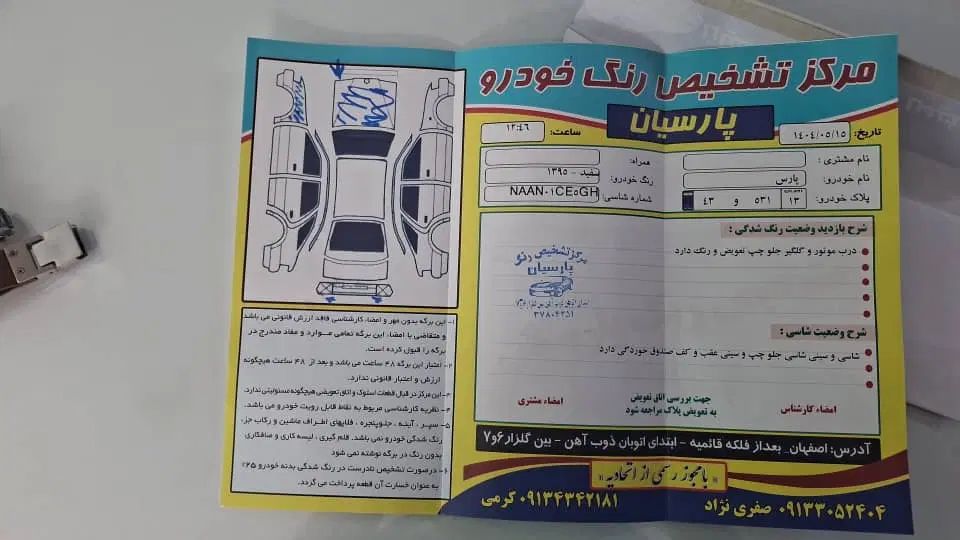 مرکز تشخیص رنگ خودرو
پارسیان
تاریخ: ۱۴۰۴/۰۵/۱۵
ساعت: ۱۲:۴۶
نام مشتری :
همراه:
نام خودرو: پارس
رنگ خودرو: سفید - ۱۳۹۵
پلاک خودرو: ۱۳ ۵۳۱ و ۴۳
شماره شاسی: NAAN۰۱CE۵GH
شرح بازدید وضعیت رنگ شدگی :
درب موتور و گلگیر جلو چپ تعویض و رنگ دارد
مرکز تشخیص رنگ
پارسیان
۳۷۸۰۴۲۵۱
شرح وضعیت شاسی :
شاسی و سینی شاسی جلو چپ و سینی عقب و کف صندوق خوردگی دارد
امضاء کارشناس
جهت بررسی اتاق تعویض
به تعویض پلاک مراجعه شود
امضاء مشتری
آدرس: اصفهان_ بعداز فلکه قائمیه - ابتدای اتوبان ذوب آهن - بین گلزار ۶و۷
بامجوز رسمی از اتحادیه
۰۹۱۳۳۰۵۲۴۰۴ صفری نژاد
۰۹۱۳۴۳۴۲۱۸۱ کرمی
۱- این برگه بدون مهر و امضاء کارشناسی فاقد ارزش قانونی می باشد
و متقاضی با امضاء این برگه تمامی موارد و مفاد مندرج در
برگه را قبول کرده است.
۲- اعتبار این برگه ۴۸ ساعت می باشد و بعد از ۴۸ ساعت هیچگونه
ارزش و اعتبار قانونی ندارد.
۳- این مرکز در قبال قطعات استوک و اتاق تعویضی هیچگونه مسئولیتی ندارد.
۴- نظریه کارشناسی مربوط به نقاط قابل رویت خودرو می باشد.
۵- سپر، آینه، جلوپنجره، فلاپهای اطراف ماشین و رکاب جزء
رنگ شدگی خودرو نمی باشد. قلم گیری، لیسه کاری و صافکاری
بدون رنگ در برگه نوشته نمی شود
۶- درصورت تشخیص نادرست در رنگ شدگی بدنه خودرو ۲۵٪
به عنوان خسارت آن قطعه پرداخت می گردد.